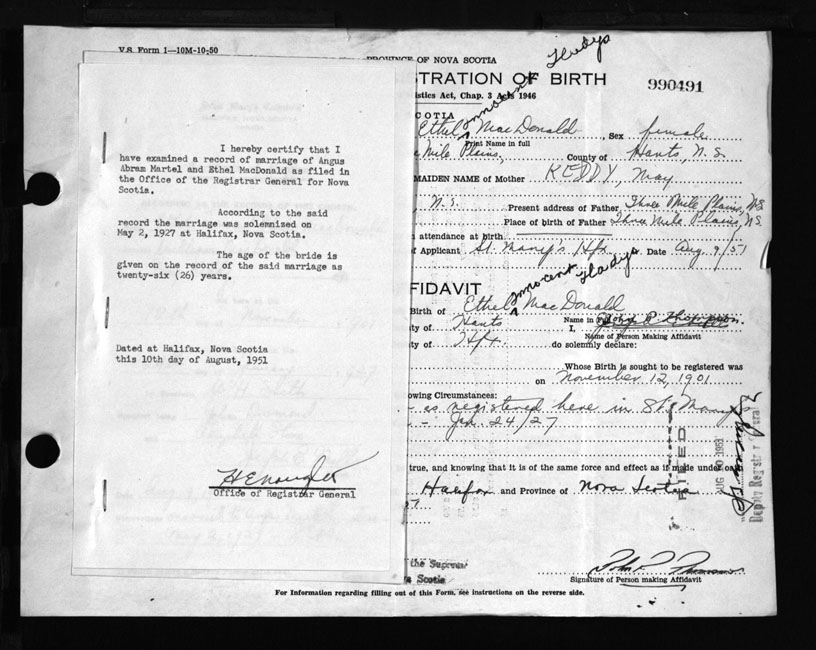 V.S. Form 1—10M-10-50
PROVINCE OF NOVA SCOTIA
STRATION OF BIRTH
990491
istics Act, Chap. 3 Acts 1946
COTIA
Innocent Gladys
Ethel MacDonald, Sex female
Print Name in full
Mile Plains, County of Hants N.S.
MAIDEN NAME of Mother KEDDY, May
N.S. Present address of Father Three Mile Plains, N.S.
Place of birth of Father Three Mile Plains, N.S.
attendance at birth
f Applicant St. Mary's Hfx. Date Aug. 9/51
Innocent Gladys
FFIDAVIT
Birth of Ethel MacDonald
ty of Hants I, John P. Thompson
Name in Full
Name of Person Making Affidavit
ty of Hfx. do solemnly declare:
Whose Birth is sought to be registered was
on November 12, 1901
owing Circumstances:
- as registered here in St. Mary's
- Jan. 24/27
true, and knowing that it is of the same force and effect as if made under oath
Halifax and Province of Nova Scotia
FILED
AUG 10 1951
Deputy Registrar General
the Supreme
a Scotia
Signature of Person making Affidavit
For Information regarding filling out of this Form, see instructions on the reverse side.
I hereby certify that I
have examined a record of marriage of Angus
Abram Martel and Ethel MacDonald as filed in
the Office of the Registrar General for Nova
Scotia.
According to the said
record the marriage was solemnized on
May 2, 1927 at Halifax, Nova Scotia.
The age of the bride is
given on the record of the said marriage as
twenty-six (26) years.
Dated at Halifax, Nova Scotia
this 10th day of August, 1951
Office of Registrar General